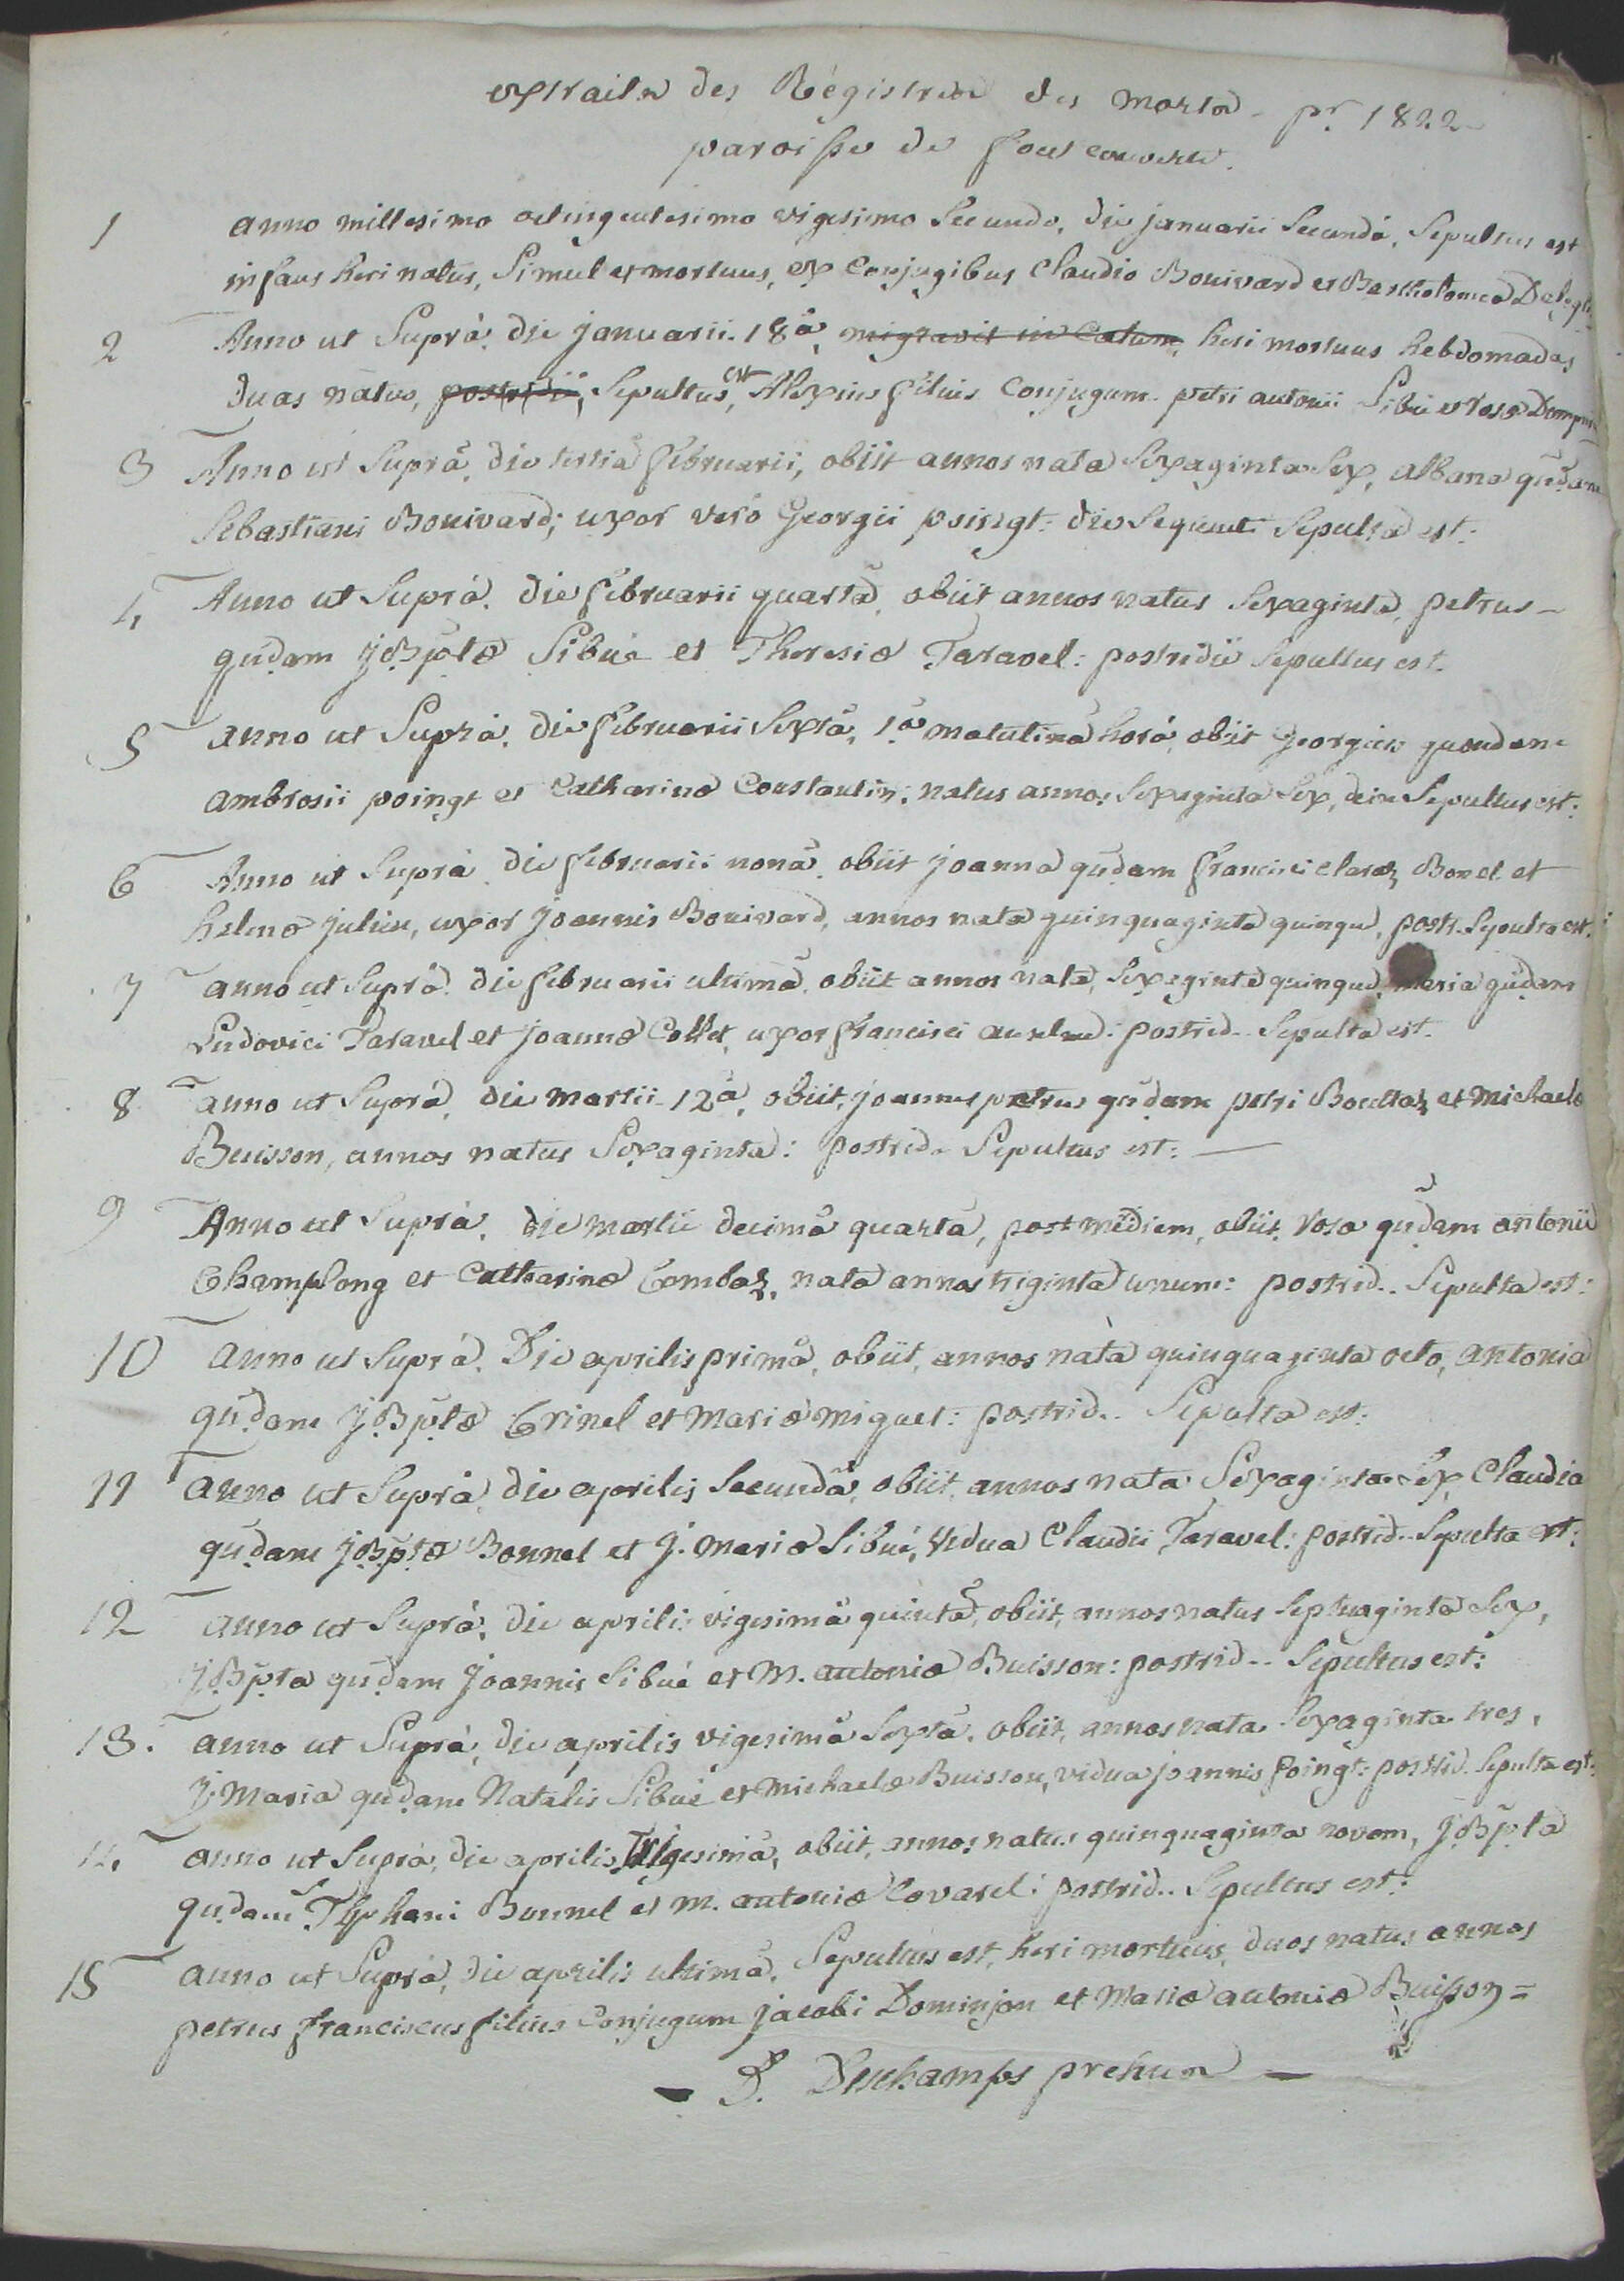 extraits des Régistres des morts pr 1822
paroisse de Fontcouverte.
1 anno millesimo octingentesimo vigesimo Secundo, die januarii Secundâ, Sepultus est
infans heri natus, Simul et mortuus, ex Conjugibus Claudio Bouivard et Bartholomea
2 Anno ut Suprà. die januarii 18â, migravit in Cœlum, heri mortuus hebdomadas
duas natus, postridiè, Sepultus est, Alexius filius Conjugum petri antonii Sibué et rosæ
3 Anno ut Suprà. die tertiâ februarii, obiit annos nata Sexaginta Sex, albana qudam
Sebastiani Bouivard; uxor verò Georgii poingt: die Sequenti Sepulta est:
4 Anno ut Suprà. die februarii quartâ, obiit annos natus Sexaginta, petrus
qudam J Bptæ Sibué et Theresiæ Taravel: postridiè Sepultus est.
5 anno ut Suprà. die februarii Sextâ, 1â matutinâ horâ, obiit Georgius quondam
ambrosii poingt et Catharinæ Constantin: natus annos Sexaginta Sex, dein Sepultus est:
6 Anno ut Suprà. die februarii nonâ, obiit joanna qudam francisci claraz Bonel et
helenæ julien, uxor joannis Bouivard, annos nata quinquaginta quinque, postr. Sepulta est:
7 anno ut Suprà. die februarii ultimâ, obiit annos nata, Sexaginta quinque, maria qudam
Ludovici Taravel et joannæ Collet, uxor francisci anselme: postrid.. Sepulta est.
8 anno ut Suprà, die martii 12â, obiit, joannes petrus qudam petri Bouttaz et michaelæ
Buisson, annos natus Sexaginta: postrid.. Sepultus est:
9 Anno ut Suprà. die martii decimâ quartâ, post mediem, obiit, rosa qudam antonii
Champlong et Catharinæ Combaz, nata annos triginta unum: postrid.. Sepulta est:
10 anno ut Suprà. Die aprilis primâ, obiit, annos nata quinquaginta octo, antonia
qudam J Bptæ Crinel et mariæ miguet: postrid.. Sepulta est:
11 anno ut Suprà, die aprilis Secundâ, obiit, annos nata Sexaginta Sex Claudia
qudam J Bptæ Bonnel et J. mariæ Sibué, vidua Claudii Taravel: postrid.. Sepulta est:
12 anno ut Suprà. die aprilis vigesimâ quintâ, obiit, annos natus Septuaginta Sex,
J Bpta qudam joannis Sibué et M. antoniæ Buisson: postrid.. Sepultus est:
13. anno ut Suprà, die aprilis vigesimâ Sextâ. obiit, annos nata Sexaginta tres,
J. Maria qudam Natalis Sibué et michaelæ Buisson, vidua joannis poingt: postrid. Sepulta est:
14 anno ut Suprà, die aprilis Trigesimâ, obiit, annos natus quinquaginta novem, J Bpta
qudam Typhani Bonnel et m. antoniæ Covarel: postrid.. Sepultus est:
15 anno ut Suprà, die aprilis ultimâ. Sepultus est, heri mortuus, duos natus annos
petrus franciscus filius Conjugum jacobi Dominjon et Mariæ antoniæ Buisson =
Deschamps